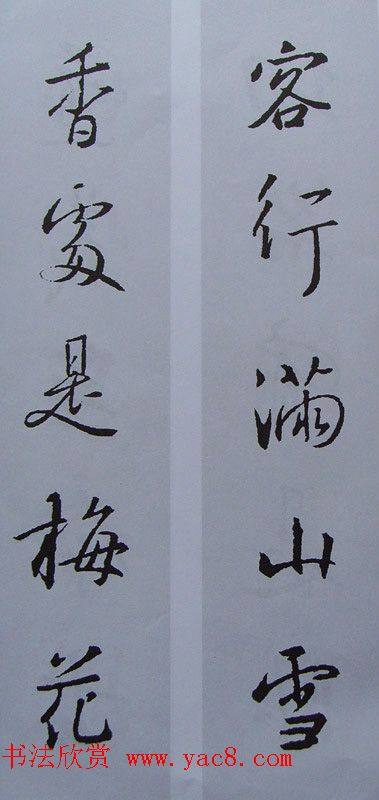 客行滿山雪
香處是梅花
书法欣赏 www.yac8.com